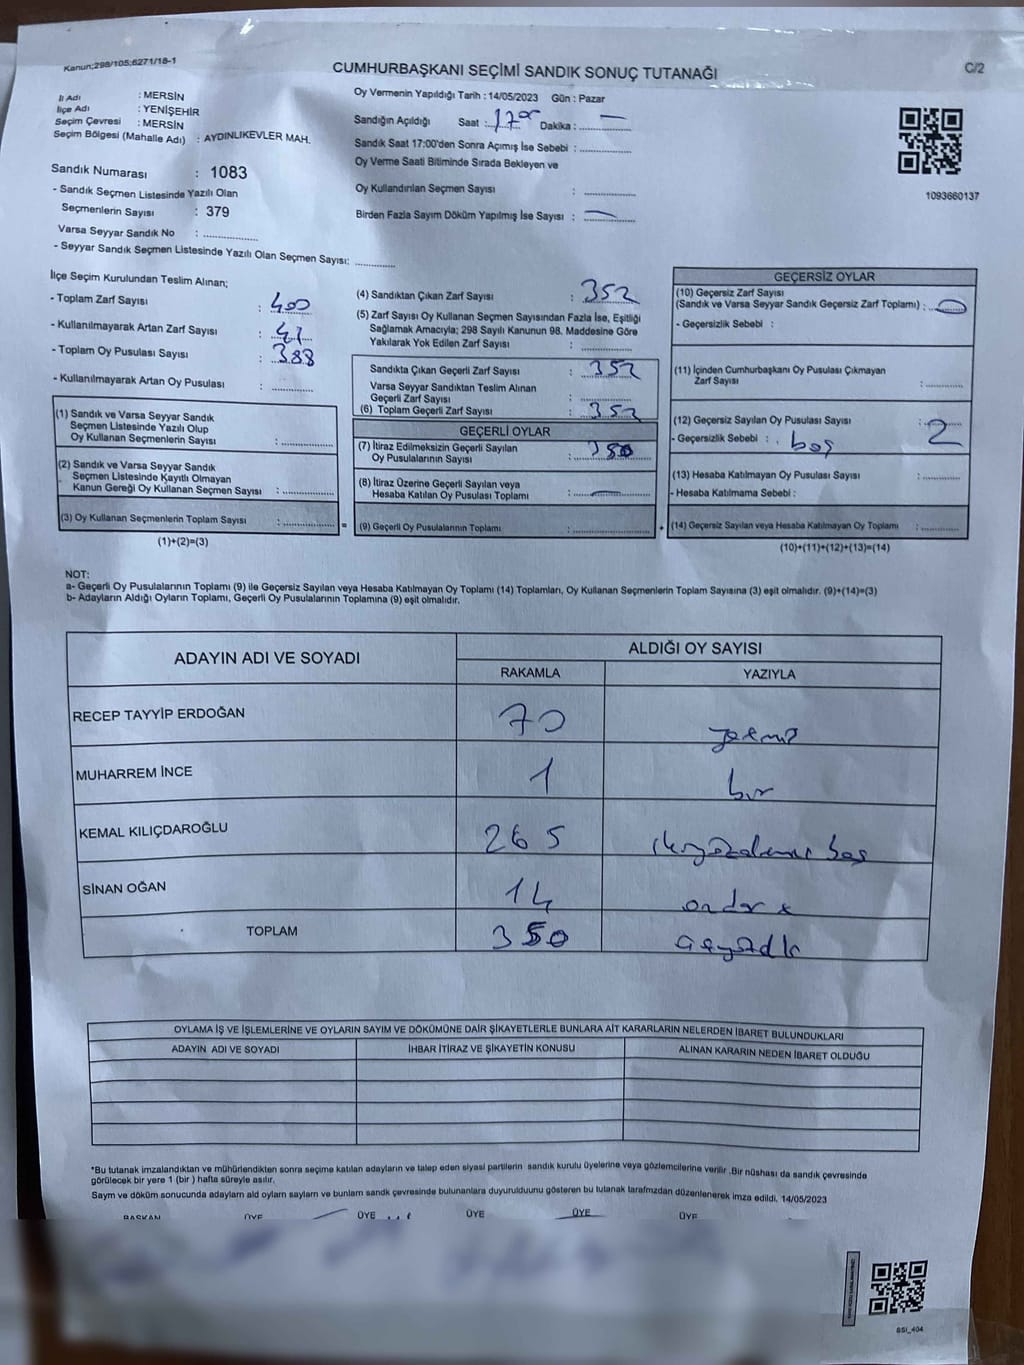 Kanun;298/105;6271/18-1
CUMHURBAŞKANI SEÇİMİ SANDIK SONUÇ TUTANAĞI
C/2
İl Adı : MERSİN
İlçe Adı : YENİŞEHİR
Seçim Çevresi : MERSİN
Seçim Bölgesi (Mahalle Adı) : AYDINLIKEVLER MAH.
Sandık Numarası : 1083
- Sandık Seçmen Listesinde Yazılı Olan
Seçmenlerin Sayısı : 379
Varsa Seyyar Sandık No : ..............
- Seyyar Sandık Seçmen Listesinde Yazılı Olan Seçmen Sayısı: ..........
Oy Vermenin Yapıldığı Tarih : 14/05/2023 Gün : Pazar
Sandığın Açıldığı Saat : 17 00 Dakika : ............. —
Sandık Saat 17:00'den Sonra Açımış İse Sebebi : .............
Oy Verme Saati Bitiminde Sırada Bekleyen ve
Oy Kullandırılan Seçmen Sayısı : .............
Birden Fazla Sayım Döküm Yapılmış İse Sayısı : —
1093660137
İlçe Seçim Kurulundan Teslim Alınan;
- Toplam Zarf Sayısı : 400
- Kullanılmayarak Artan Zarf Sayısı :
- Toplam Oy Pusulası Sayısı : 388
- Kullanılmayarak Artan Oy Pusulası : ..........
(1) Sandık ve Varsa Seyyar Sandık
Seçmen Listesinde Yazılı Olup
Oy Kullanan Seçmenlerin Sayısı : .............
(2) Sandık ve Varsa Seyyar Sandık
Seçmen Listesinde Kayıtlı Olmayan
Kanun Gereği Oy Kullanan Seçmen Sayısı : .............
(3) Oy Kullanan Seçmenlerin Toplam Sayısı : .............
(1)+(2)=(3)
(4) Sandıktan Çıkan Zarf Sayısı : 352
(5) Zarf Sayısı Oy Kullanan Seçmen Sayısından Fazla İse, Eşitliği
Sağlamak Amacıyla; 298 Sayılı Kanunun 98. Maddesine Göre
Yakılarak Yok Edilen Zarf Sayısı : .............
Sandıkta Çıkan Geçerli Zarf Sayısı : 352
Varsa Seyyar Sandıktan Teslim Alınan
Geçerli Zarf Sayısı : .............
(6) Toplam Geçerli Zarf Sayısı : 352
GEÇERLİ OYLAR
(7) İtiraz Edilmeksizin Geçerli Sayılan
Oy Pusulalarının Sayısı : 350
(8) İtiraz Üzerine Geçerli Sayılan veya
Hesaba Katılan Oy Pusulası Toplamı : —
(9) Geçerli Oy Pusulalarının Toplamı : .............
GEÇERSİZ OYLAR
(10) Geçersiz Zarf Sayısı
(Sandık ve Varsa Seyyar Sandık Geçersiz Zarf Toplamı) : 0
- Geçersizlik Sebebi :
(11) İçinden Cumhurbaşkanı Oy Pusulası Çıkmayan
Zarf Sayısı : ..........
(12) Geçersiz Sayılan Oy Pusulası Sayısı : 2
- Geçersizlik Sebebi : boş
(13) Hesaba Katılmayan Oy Pusulası Sayısı : ..........
- Hesaba Katılmama Sebebi :
(14) Geçersiz Sayılan veya Hesaba Katılmayan Oy Toplamı : ..........
(10)+(11)+(12)+(13)=(14)
NOT:
a- Geçerli Oy Pusulalarının Toplamı (9) ile Geçersiz Sayılan veya Hesaba Katılmayan Oy Toplamı (14) Toplamları, Oy Kullanan Seçmenlerin Toplam Sayısına (3) eşit olmalıdır. (9)+(14)=(3)
b- Adayların Aldığı Oyların Toplamı, Geçerli Oy Pusulalarının Toplamına (9) eşit olmalıdır.
ADAYIN ADI VE SOYADI ALDIĞI OY SAYISI
RAKAMLA YAZIYLA
RECEP TAYYİP ERDOĞAN 70 yetmiş
MUHARREM İNCE 1 bir
KEMAL KILIÇDAROĞLU 265 ikiyüzaltmış beş
SİNAN OĞAN 14 ondört
TOPLAM 350 üçyüzelli
OYLAMA İŞ VE İŞLEMLERİNE VE OYLARIN SAYIM VE DÖKÜMÜNE DAİR ŞİKAYETLERLE BUNLARA AİT KARARLARIN NELERDEN İBARET BULUNDUKLARI
ADAYIN ADI VE SOYADI İHBAR İTİRAZ VE ŞİKAYETİN KONUSU ALINAN KARARIN NEDEN İBARET OLDUĞU
*Bu tutanak imzalandıktan ve mühürlendikten sonra seçime katılan adayların ve talep eden siyasi partilerin sandık kurulu üyelerine veya gözlemcilerine verilir .Bir nüshası da sandık çevresinde
görülecek bir yere 1 (bir ) hafta süreyle asılır.
Sayım ve döküm sonucunda adayların ald oyların sayların ve bunların sandk çevresinde bulunanlara duyurulduunu gösteren bu tutanak tarafımzdan düzenlenerek imza edildi. 14/05/2023
BAŞKAN ÜYE ÜYE ÜYE ÜYE ÜYE
BSI_404